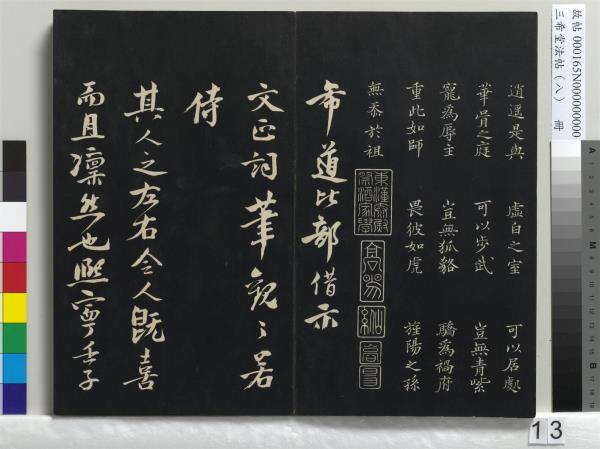 故帖 000165N000000000
三希堂法帖(八) 冊
逍遥是與 虛白之室 可以居處
華胥之庭 可以步武 豈無青紫
寵為辱主 豈無狐貉 驕為禍府
重此如師 畏彼如虎 旌陽之孫
無忝於祖
東漢太尉
祭酒家學
希道比部借示
文正詞筆觀之若
侍
其人之左右令人既喜
而且凜然也熙寧壬子
13